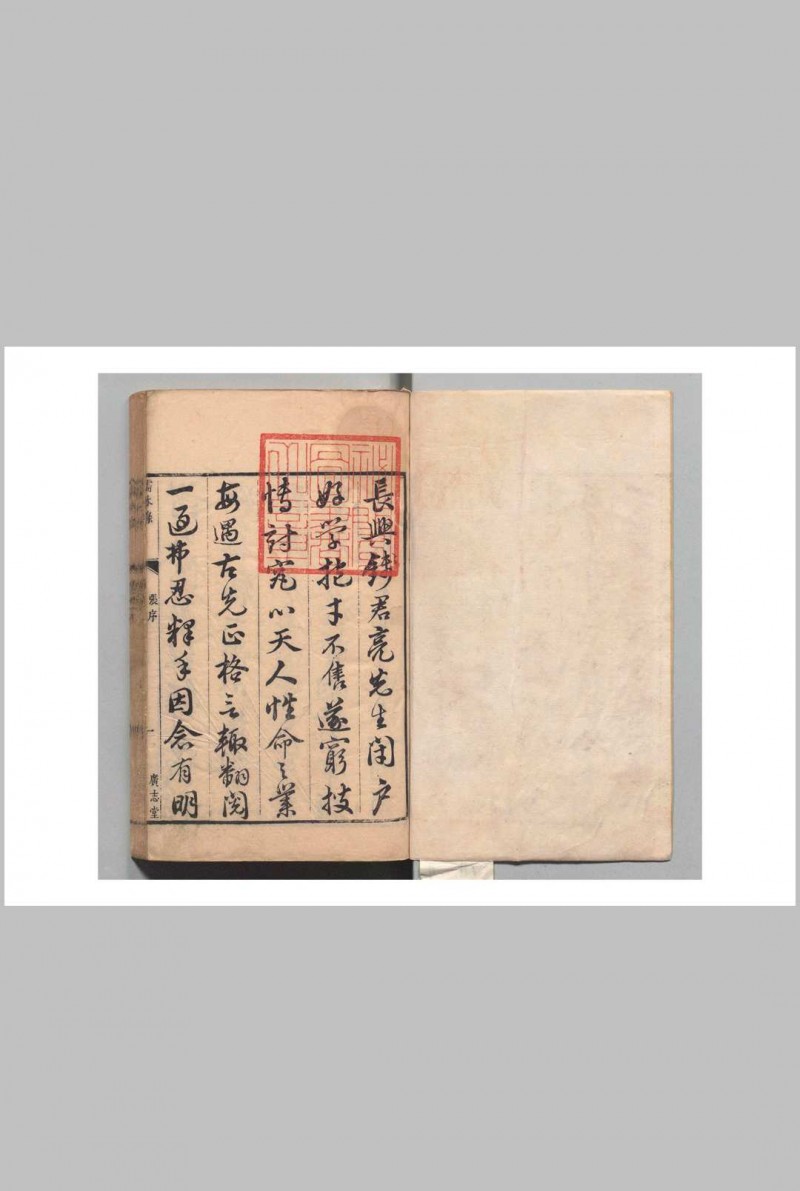 長興錢君亮先生閉户
好学抱才不售遂窮搜
博討究心天人性命之業
每遇古先正格言輙翻閲
一過弗忍釋手因念有明
張序
一
廣志堂